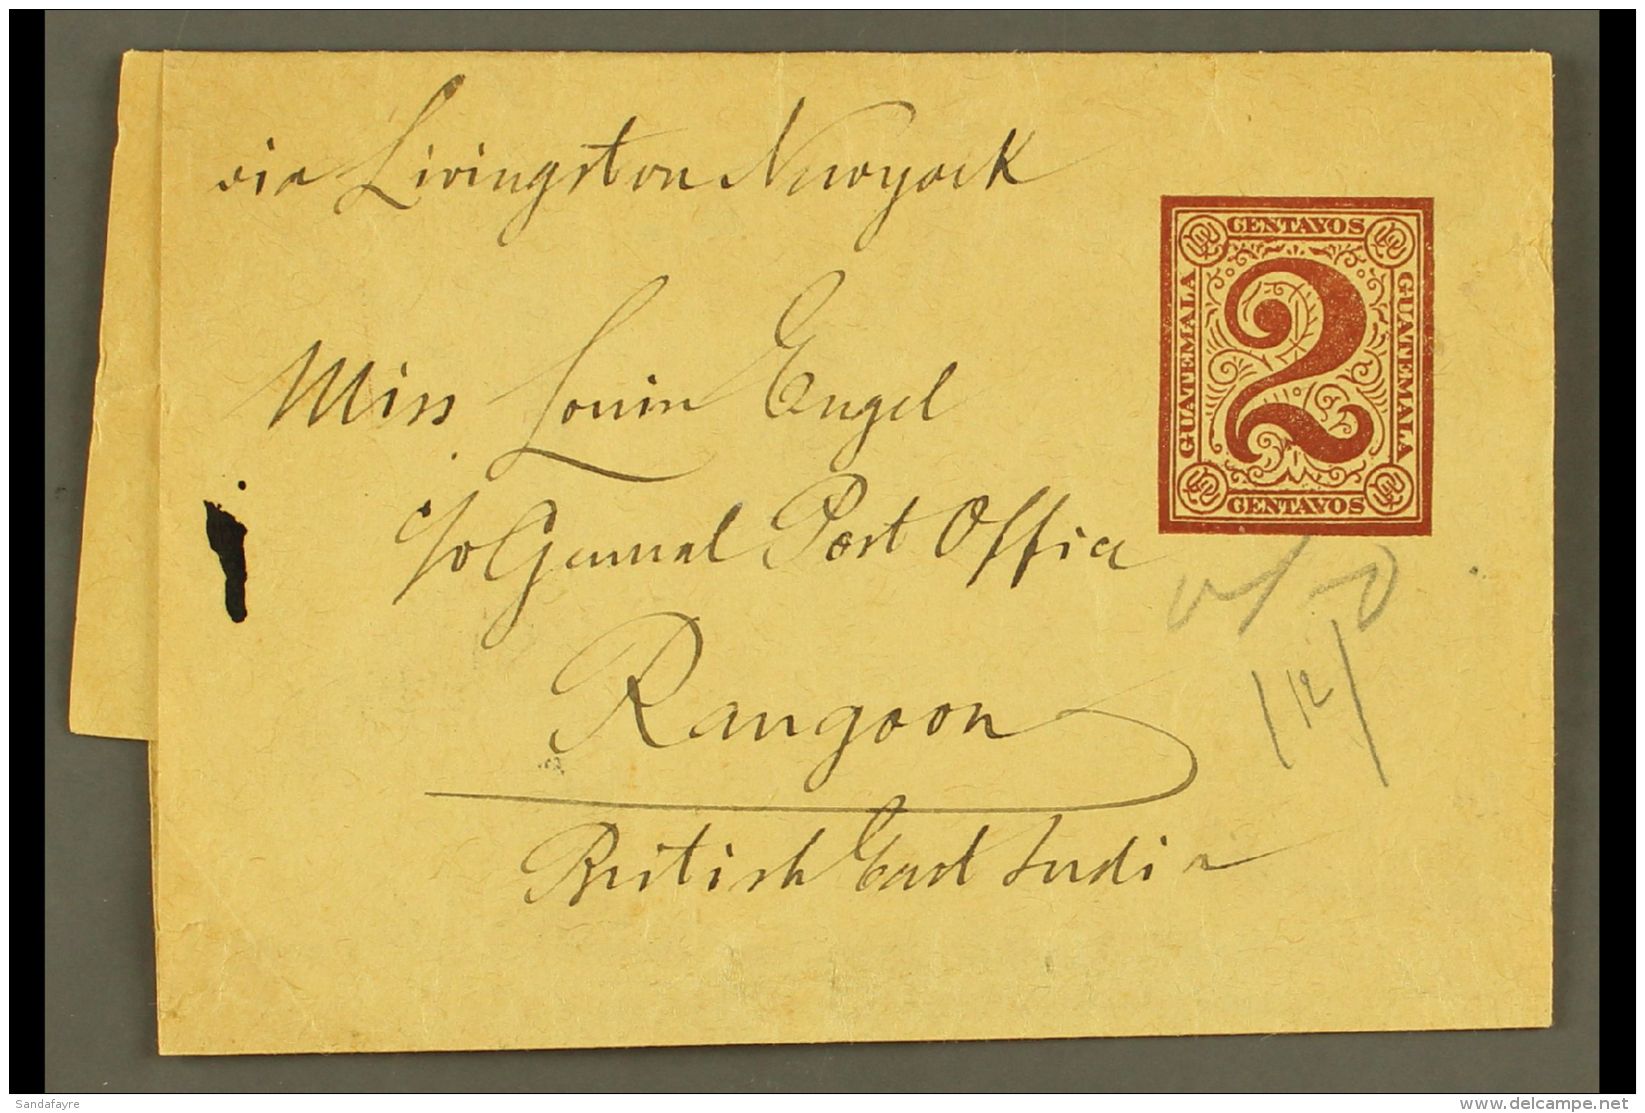 via Livingston Newyork
CENTAVOS
GUATEMALA
2
GUATEMALA
CENTAVOS
Miss Engel
c/o General Post Office
Rangoon
British East India
12
Sandafayre
www.delcampe.net